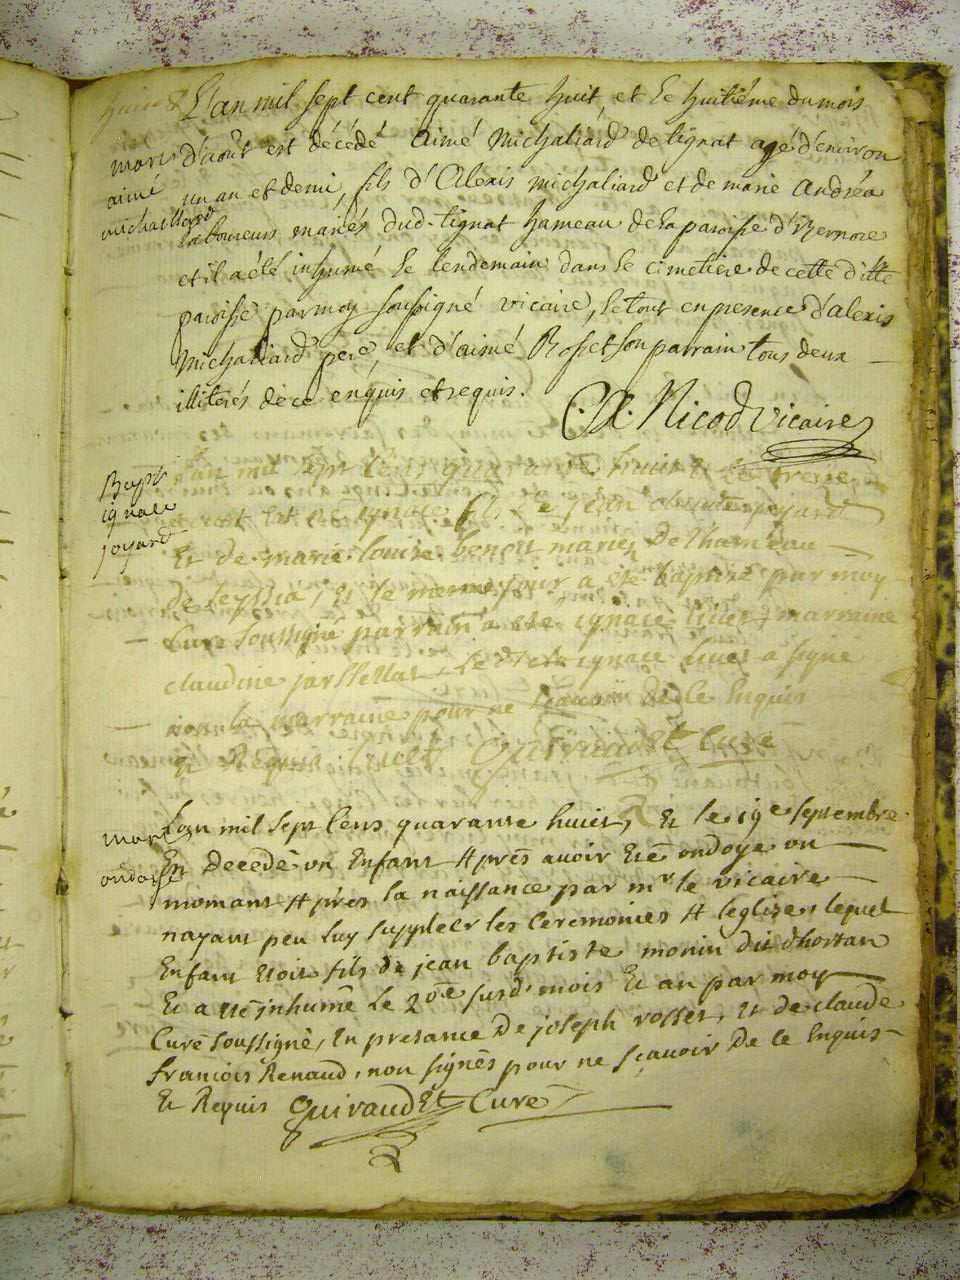 L'an mil sept cent quarante huit et le huitiême du mois
mort
aimé
michaillard
d'août est décédé aimé Michaliard de lignat agé d'environ
un an et demi, fils d'Alexis michaliard et de marie Andréa
laboureurs mariés dud. lignat hameau de la paroisse d'izernore
et il a été inhumé le lendemain dans le cimetiere de cette ditte
paroisse par moy soussigné vicaire, le tout en presence d'alexis
Michaliard pere et d'aimé Rosset son parrain tous deux
illiterés de ce enquis et requis.
Nicod vicaire
Bapt
ignace
joyard
l'an mil sept Cens quarante huict et le treize
est né ignace fils de jean claude joyard
Et de marie louise benoit mariez De lhameau
De Seyssia, Et le meme jour a été baptizé par moy
Curé soussigné parrain a été ignace livet marraine
claudine jarstellat, le dit ignace livet a signé
non la marraine pour ne sçavoir De Ce Enquis
Et Requise livet Quiraudet Curé
mort
ondoyé
Lan mil sept Cens quarante huict, Et le 19e septembre
Est Decedé un Enfant Aprés avoir Eté ondoyé un
momant Aprés la naissance par mr le vicaire
nayant peu luy suppleer les Ceremonies A leglize, lequel
Enfant Etoit fils de jean baptiste monin dit dhortan
Et a été inhumé le 20e susd. mois Et an par moy
Curé soussigné, En presance De joseph rosset, Et de claude
francois Renaud, non signés pour ne sçavoir De Ce Enquis
Et Requis Quiraudet Curé